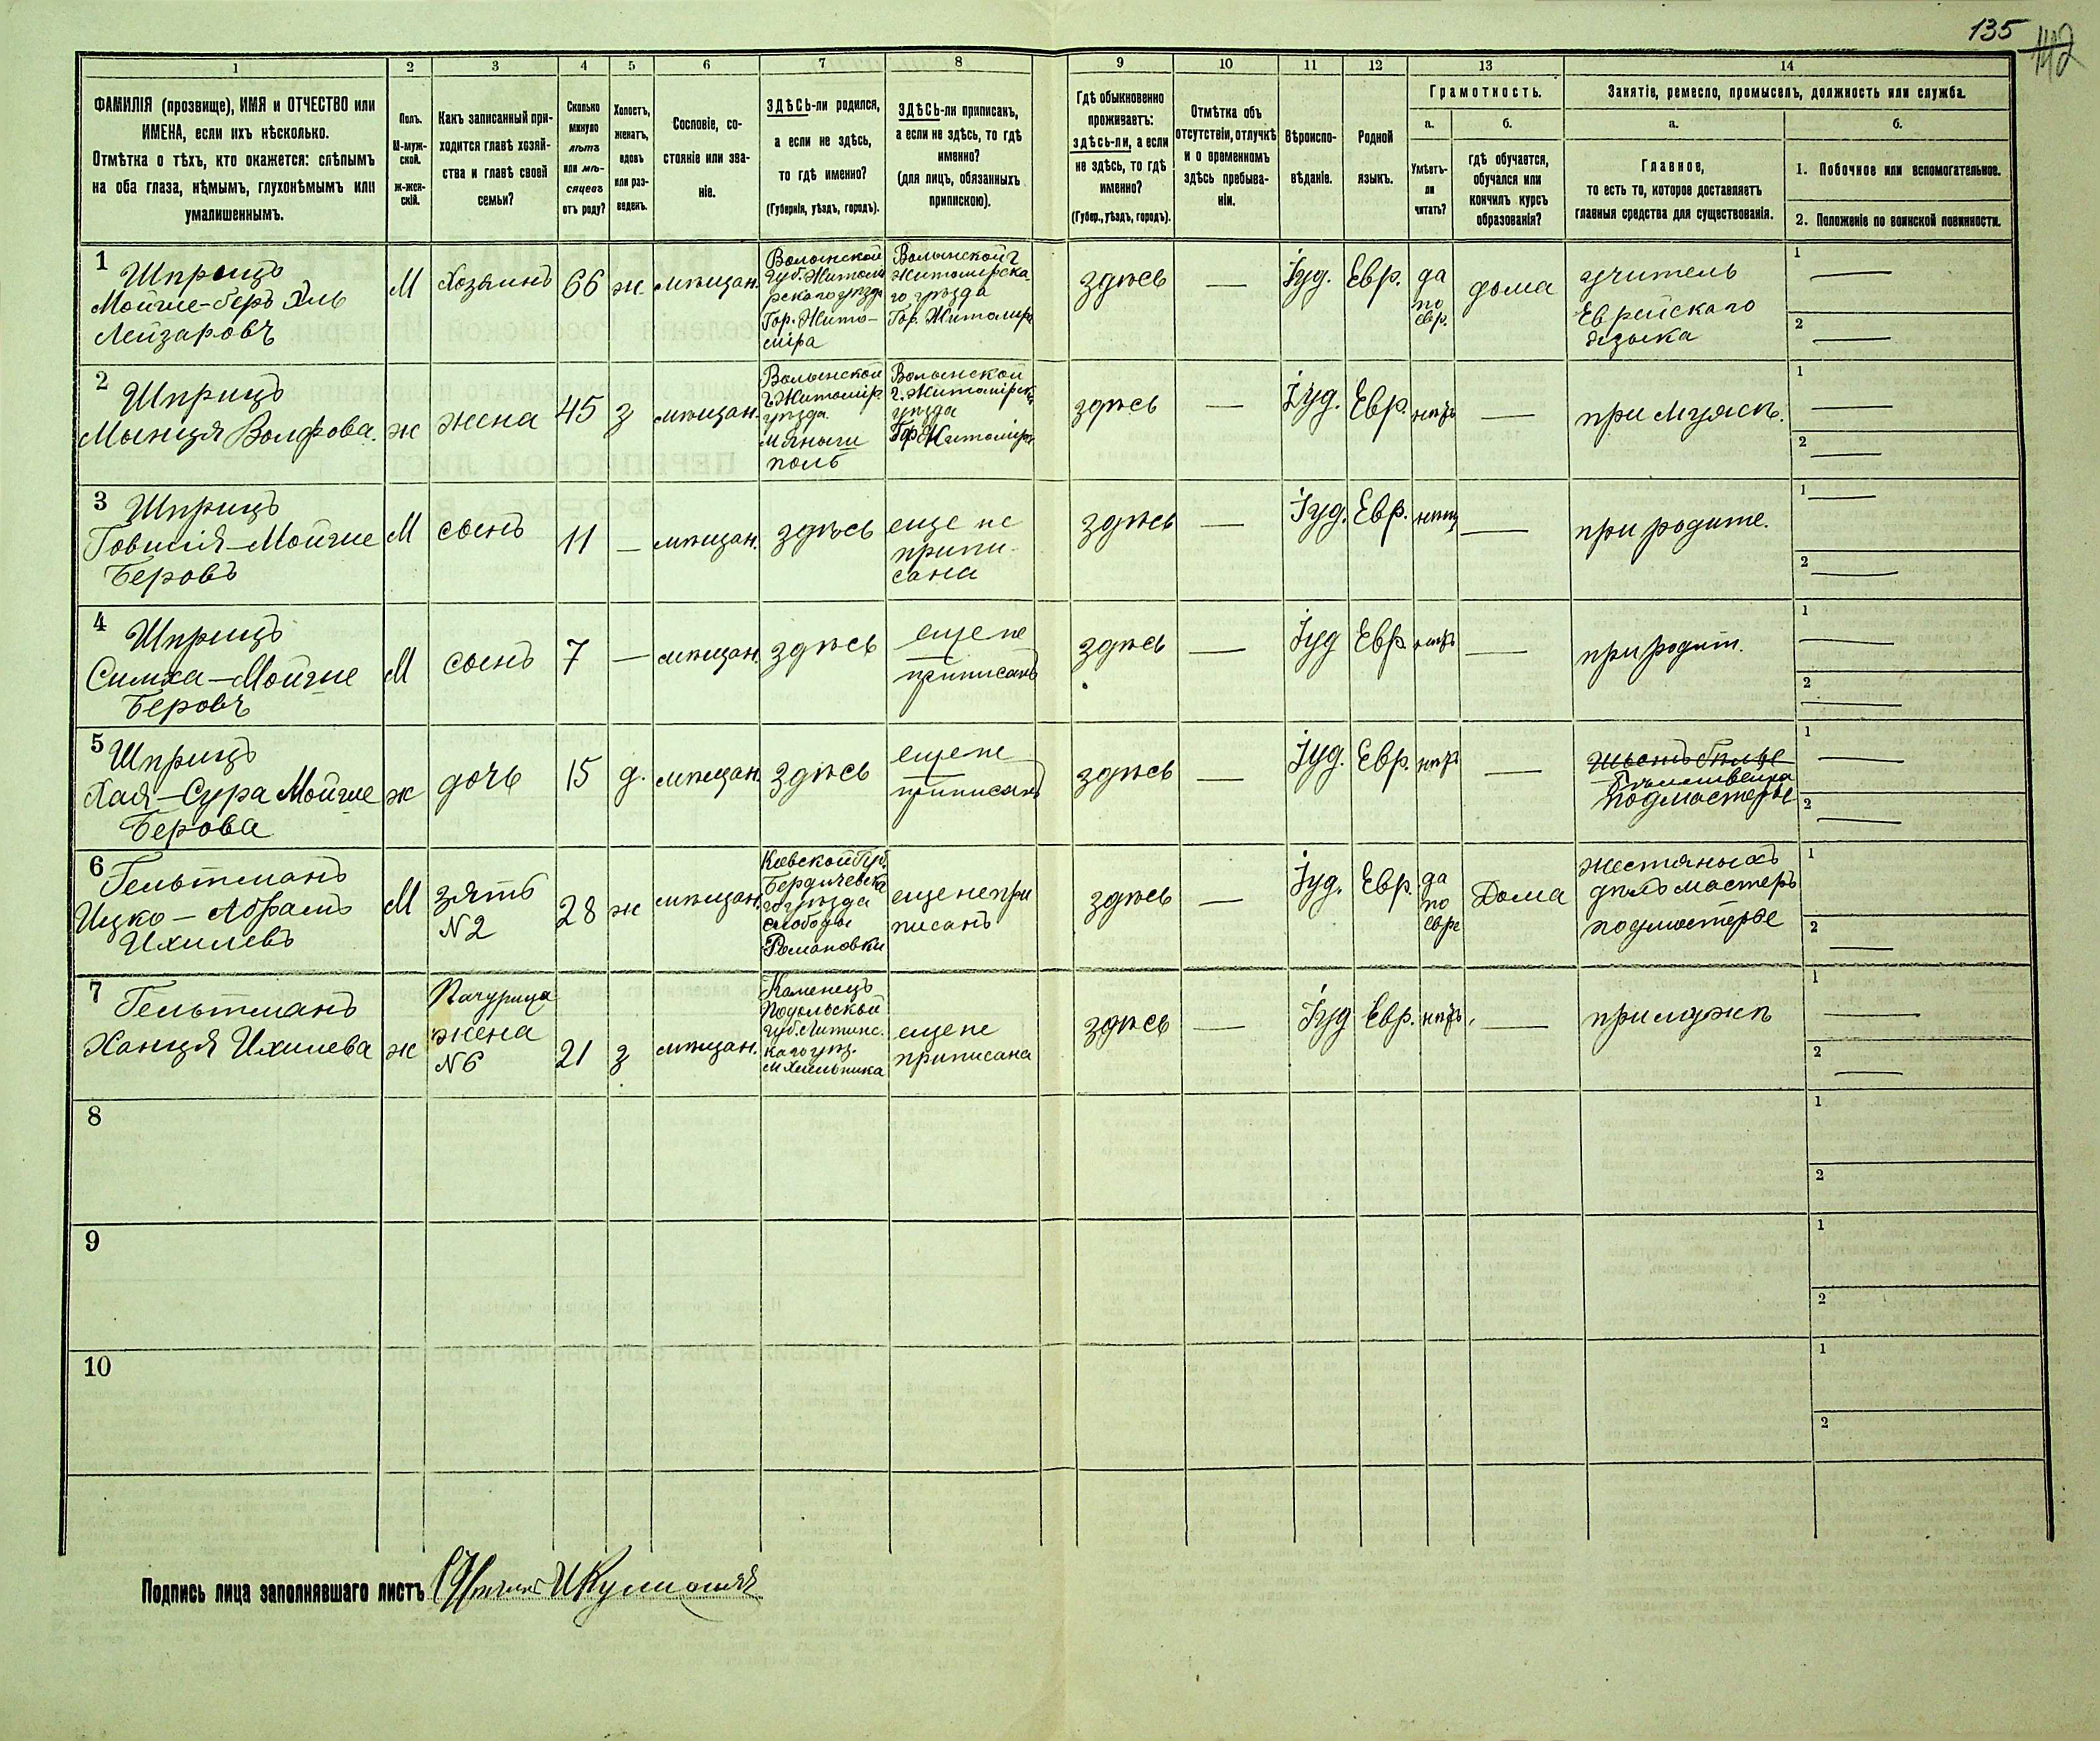 135
142
1
2
3
4
5
6
7
8
9
10
11
12
13
14
ФАМИЛІЯ (прозвище), ИМЯ и ОТЧЕСТВО или
ИМЕНА, если ихъ нѣсколько.
Отмѣтка о тѣхъ, кто окажется: слѣпымъ
на оба глаза, нѣмымъ, глухонѣмымъ или
умалишеннымъ.
Полъ.
М-муж-
ской.
ж-жен-
скій.
Какъ записанный при-
ходится главѣ хозяй-
ства и главѣ своей
семьи?
Сколько
минуло
лѣтъ
или мѣ-
сяцевъ
отъ роду?
Холостъ,
женатъ,
вдовъ
или раз-
веденъ.
Сословіе, со-
стояніе или зва-
ніе.
ЗДѢСЬ-ли родился,
а если не здѣсь,
то гдѣ именно?
(Губернія, уѣздъ, городъ).
ЗДѢСЬ-ли приписанъ,
а если не здѣсь, то гдѣ
именно?
(для лицъ, обязанныхъ
припискою).
Гдѣ обыкновенно
проживаетъ:
здѣсь-ли, а если
не здѣсь, то гдѣ
именно?
(Губер., уѣздъ, городъ).
Отмѣтка объ
отсутствіи, отлучкѣ
и о временномъ
здѣсь пребыва-
ніи.
Вѣроиспо-
вѣданіе.
Родной
языкъ.
Грамотность.
а.
Умѣетъ-
ли
читать?
б.
гдѣ обучается,
обучался или
кончилъ курсъ
образованія?
Занятіе, ремесло, промыселъ, должность или служба.
а.
Главное,
то есть то, которое доставляетъ
главныя средства для существованія.
б.
1. Побочное или вспомогательное.
2. Положеніе по воинской повинности.
1
Шприцъ
Мойше-беръ Эль
Лейзаровъ
М
Хозяинъ
66
ж
мѣщан.
Волынской
Губ. Житоми
рскаго уѣзда
Гор. Жито-
міра
Волынской г
Житомірска
го уѣзда
Гор. Житомір
здѣсь
—
Іуд.
Евр.
да
по
евр.
дома
учитель
Еврейскаго
языка
1 —
2 —
2
Шприцъ
Мынця Волфова.
ж
жена
45
з
мѣщан.
Волынской
г. Житомір.
уѣзда
м. Яныш
поль
Волынской
г. Житомірск
уѣзда
Гор Житомір
здѣсь
—
Іуд.
Евр.
нѣтъ
—
при мужѣ.
1 —
2 —
3
Шприцъ
Говшія-Мойше
Беровъ
М
сынъ
11
—
мѣщан.
здѣсь
еще не
припи-
сана
здѣсь
—
Іуд.
Евр.
нѣтъ
—
при родите.
1 —
2 —
4
Шприцъ
Симха-Мойше
Беровъ
М
сынъ
7
—
мѣщан.
здѣсь
еще не
приписанъ
здѣсь
—
Іуд
Евр
нѣтъ
—
при родит.
1 —
2 —
5
Шприцъ
Хая-Сура Мойше
Берова
ж
дочь
15
д.
мѣщан.
здѣсь
еще не
приписанъ
здѣсь
—
Іуд.
Евр.
нѣтъ
—
подмастерье
1 —
2 —
6
Гельтманъ
Ицко-Абрамъ
Ихилевъ
М
зять
N 2
28
ж
мѣщан.
Кіевской Губ.
Бердичевска
го уѣзда
слободы
Романовки
еще не при
писанъ
здѣсь
—
Іуд.
Евр.
да
по
евре
Дома
жестяныхъ
дѣлъ мастеръ
подмастерье
1
2 —
7
Гельтманъ
Ханця Ихилева
ж
Пачурица
жена
N 6
21
з
мѣщан.
Каменецъ
Подольской
губ. Литинс.
каго уѣз.
м Хмельника
еще не
приписана
здѣсь
—
Іуд
Евр.
нѣтъ.
—
при мужѣ
1 —
2 —
8
1
2
9
1
2
10
1
2
Подпись лица заполнявшаго листъ